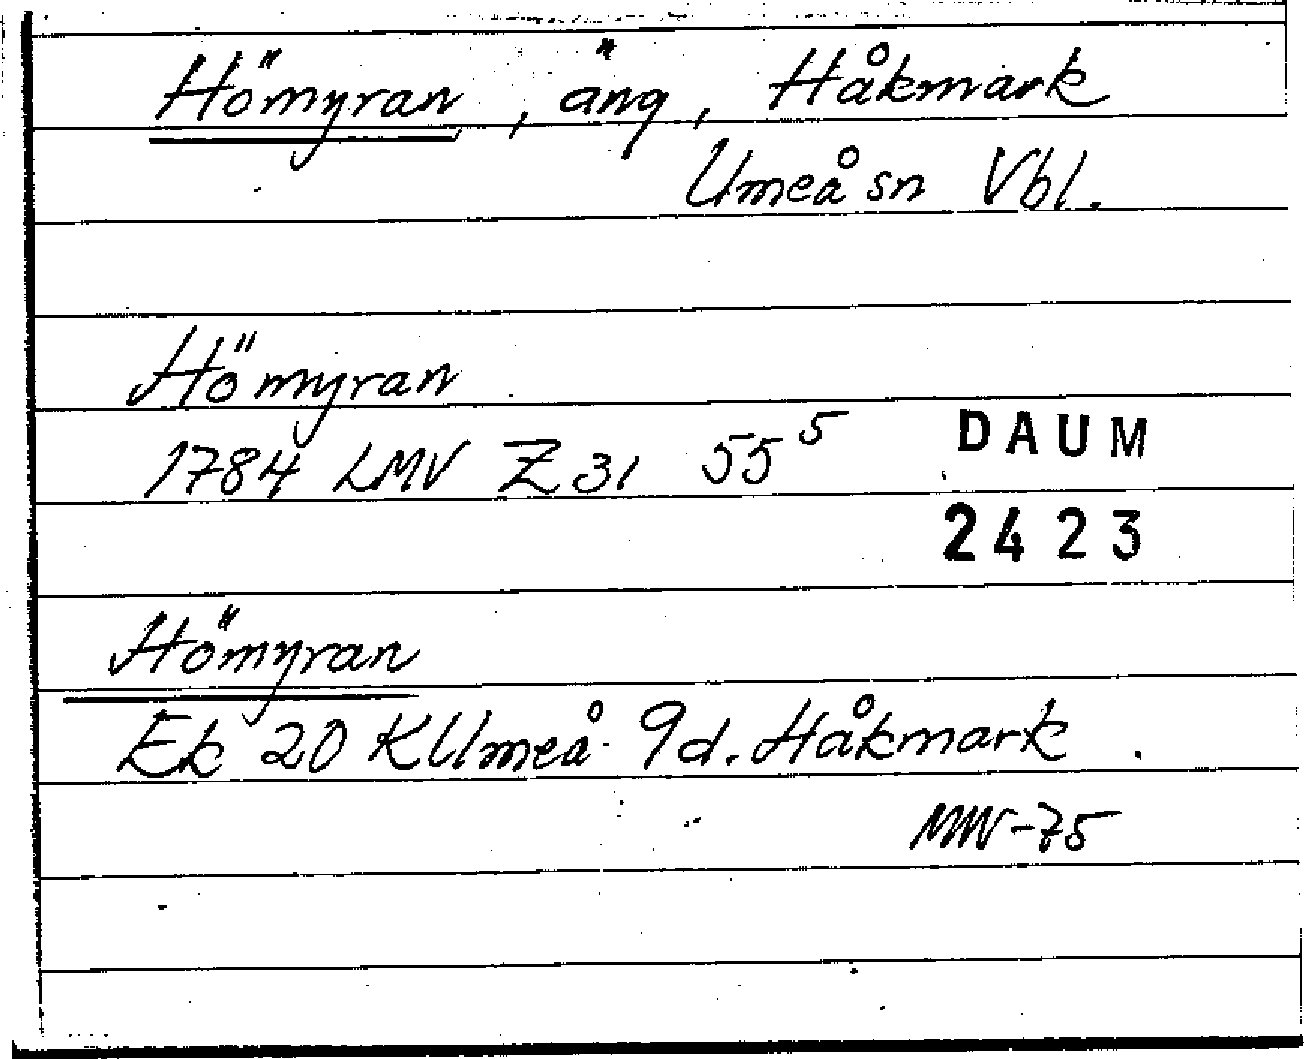 Hömyran, äng, Håkmark
Umeå sn Vbl.
Hömyran
1784 LMV Z 31 55⁵
DAUM
2423
Hömyran
Ek 20 K Umeå 9d. Håkmark.
MW-75